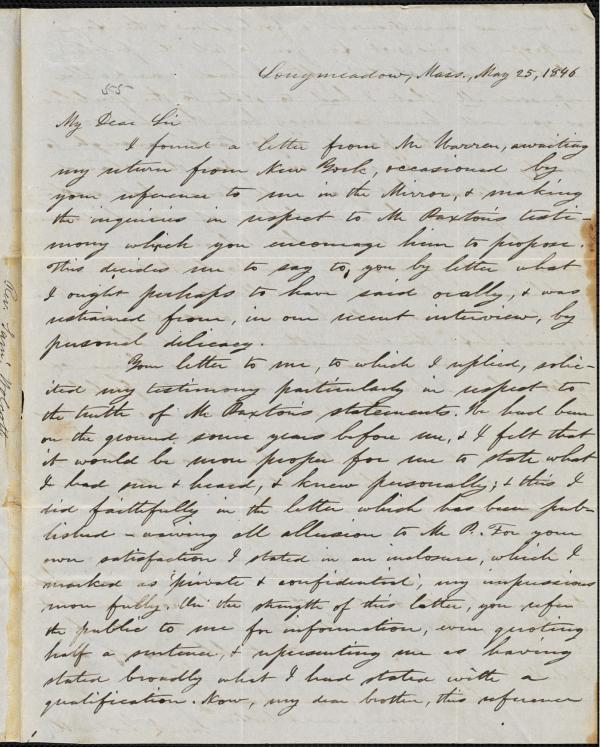 Longmeadow, Mass., May 25, 1846
55
My Dear Sir
I found a letter from Mr Warren, awaiting
my return from New York, occasioned by
your reference to me in the Mirror, & making
the inquiries in respect to Mr Paxton's testi-
mony which you encourage him to propose.
This decides me to say to you by letter what
I ought perhaps to have said orally, & was
restrained from, in our recent interview, by
personal delicacy.
Your letter to me, to which I replied, solic-
ited my testimony particularly in respect to
the truth of Mr Paxton's statements. He had been
on the ground some years before me, & I felt that
it would be more proper for me to state what
I had seen & heard, & knew personally; & this I
did faithfully in the letter which has been pub-
lished - waiving all allusion to Mr P. For your
own satisfaction I stated in an inclosure, which I
marked as 'private & confidential', my impressions
more fully. On the strength of this latter, you refer
the public to me for information, even quoting
half a sentence, & representing me as having
stated broadly what I had stated with a
qualification. Now, my dear brother, this reference
Rev. Sam'l